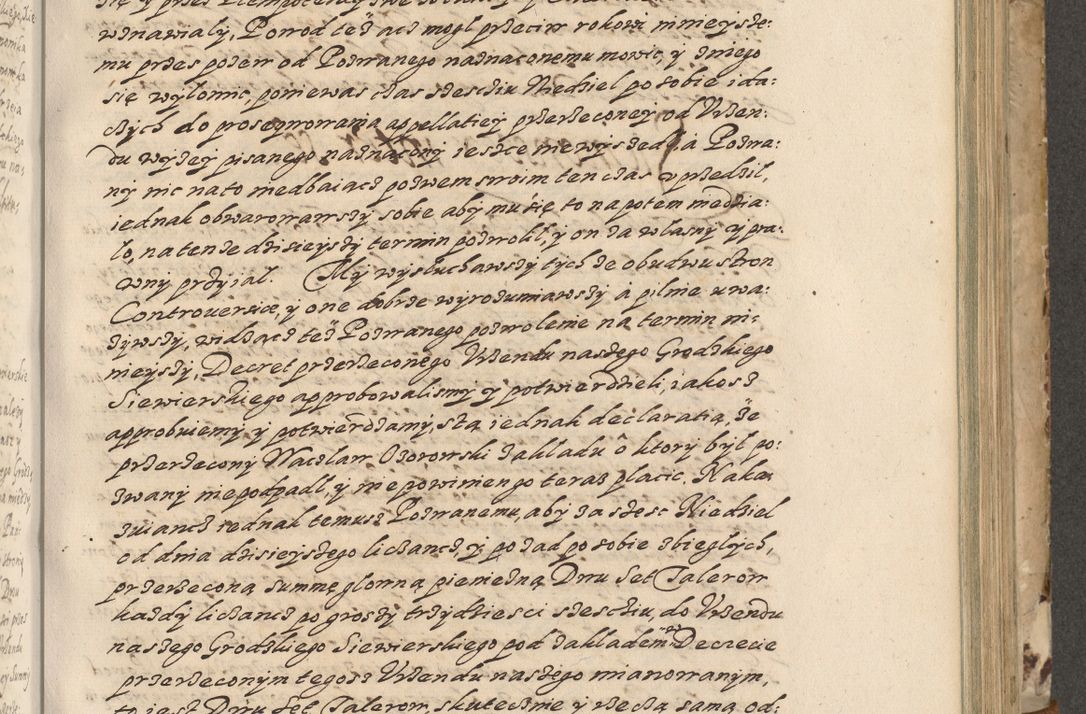 wznawiały, Powod też acz mogl przeciw rokowi ninieysze:
mu przes pozew od Pozwanego naznaczonemu mowic, y zniego
się wyłomic, poniewas czas szesciu Niedziel po sobie ida:
czych do proseqwowania appellatiey przerzeconey od Vrzen:
du wyzey pisanego naznaczony ieszcze niewyszedł, à Pozwa:
ny nic nato niedbaiącz pozwem swoim ten czas vprzedził,
iednak obwarowawszy sobie aby mu się to napotem niedzia:
ło, na tenze dzisieyszy termin pozwolił, y on za własny y pra:
wny przyiął. My wysłuchawszy tych ze obudwu stron
Controuersiie, y one dobrze wyrozumiawszy à pilnie uwa:
zywszy, widzącz też Pozwanego pozwolenie na termin ni:
nieyszy, Decret przerzeconego Vrzendu naszego Grodzkiego
Siewierskiego approbowalismy y potwierdzieli, iakosz
approbuiemy y potwierdzamy, stą iednak declaratią, że
przerzeczony Wacsław Ozorowski Zakładu ô ktory był po:
zwany niepodpadł, y niepowinien go teraz płacic. Naka:
zuiancz iednak temusz Pozwanemu, aby za szesc Niedziel
od dnia dzisieyszego licząncz, y po zad po sobie zbiegłych,
przerzeconą summę głowną pieniezną Dwu Set Talerow
kazdy licząncz po groszy trzydziesci szesciu, do Vrzendu
naszego Grodzkiego Siewierskiego pod zakładem w Decrecie
przerzeconym tegosz Vrzendu naszego mianowanym,
to iest Dwu Set Talerow, skutecznie y rzeczą samą od: